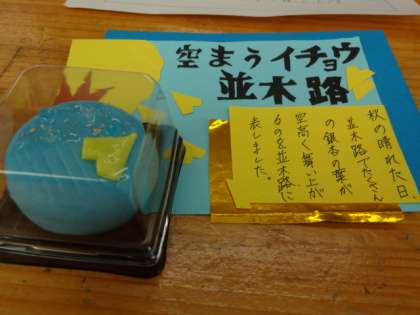 空まうイチョウ
並木路
秋の晴れた日、
並木路でたくさん
の銀杏の葉が
空高く舞い上が
るのを並木路に
表しました。